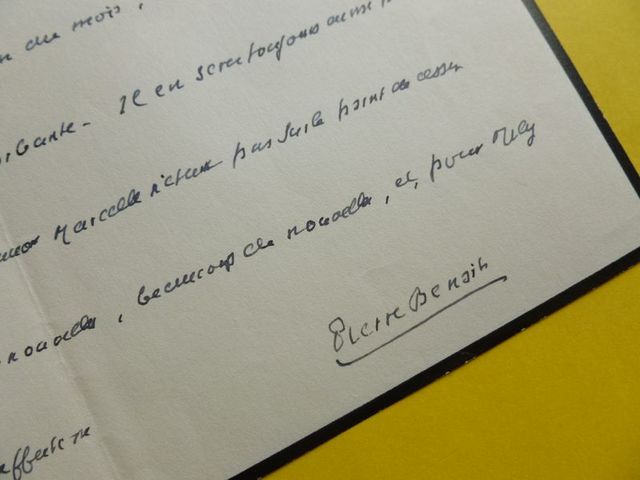 du mois,
Il en sera toujours ainsi
Marcelle n'étant pas sur le point de cesser
nouvelles, beaucoup de nouvelles, et, pour
Pierre Benoit
affection